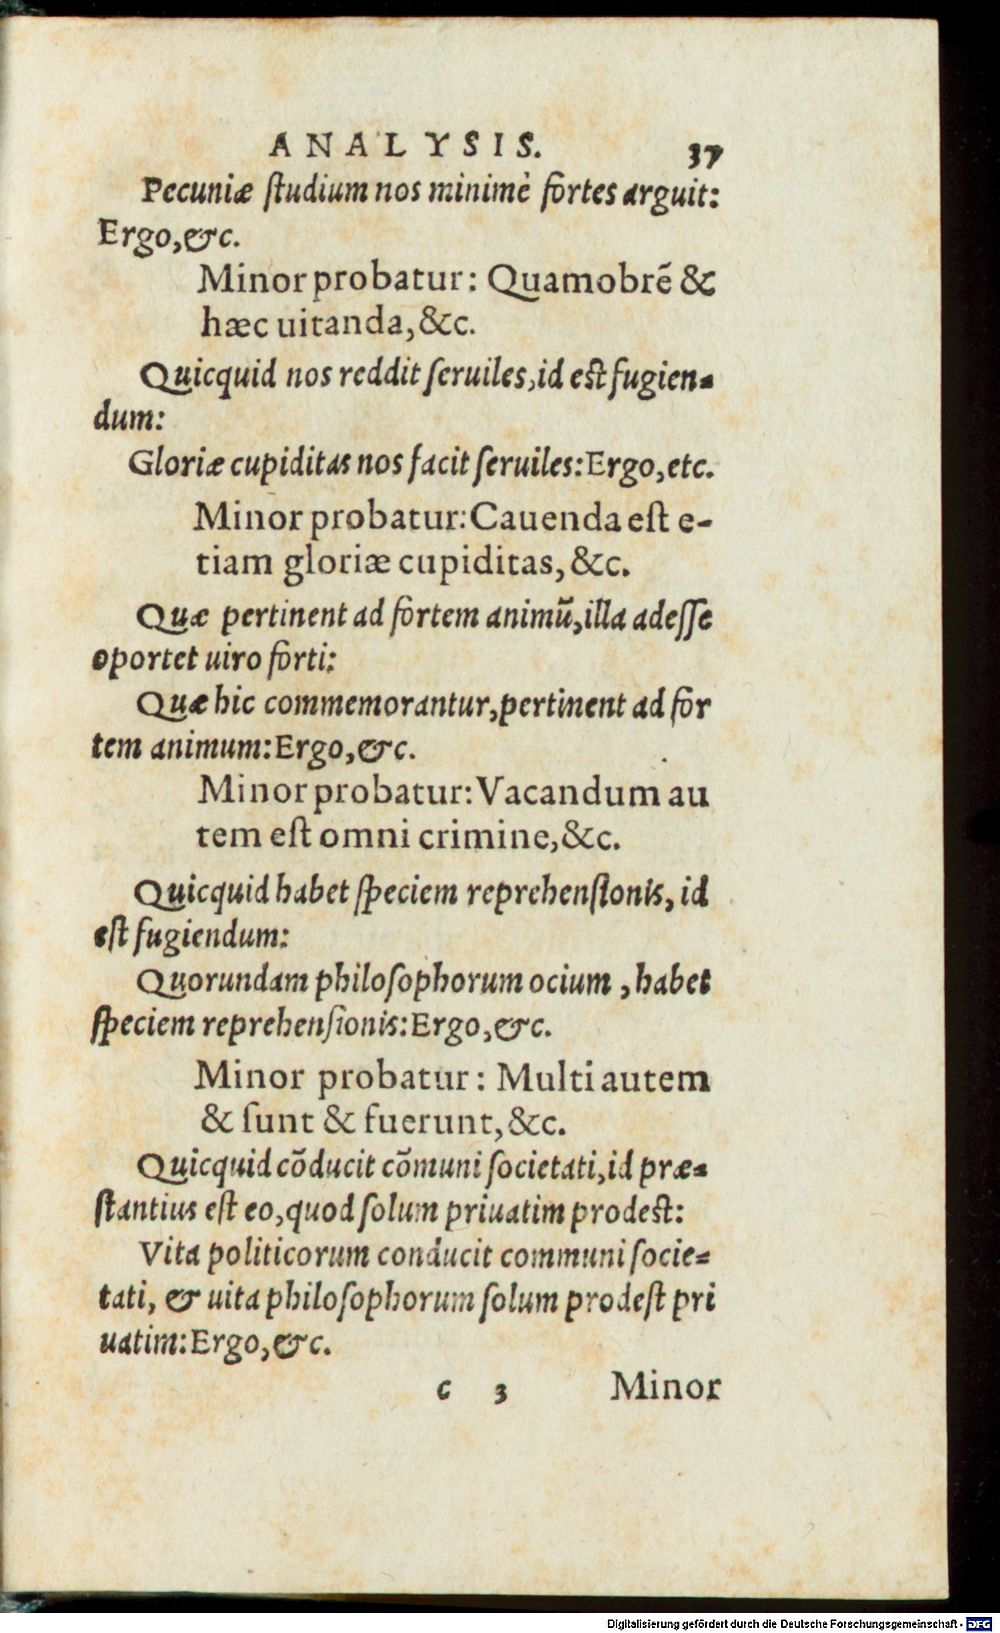 ANALYSIS. 37
Pecuniæ ſtudium nos minimè fortes arguit:
Ergo,&c.
Minor probatur: Quamobrē &
hæc uitanda,&c.
Quicquid nos reddit ſeruiles,id eſt fugien-
dum:
Gloriæ cupiditas nos facit ſeruiles:Ergo,etc.
Minor probatur:Cauenda eſt e-
tiam gloriæ cupiditas,&c.
Quæ pertinent ad fortem animū,illa adeſſe
oportet uiro forti:
Quæ hic commemorantur,pertinent ad for
tem animum:Ergo,&c.
Minor probatur:Vacandum au
tem eſt omni crimine,&c.
Quicquid habet ſpeciem reprehenſionis, id
eſt fugiendum:
Quorundam philoſophorum ocium , habet
ſpeciem reprehenſionis:Ergo,&c.
Minor probatur: Multi autem
& ſunt & fuerunt,&c.
Quicquid cōducit cōmuni ſocietati,id præ-
ſtantius eſt eo,quod ſolum priuatim prodeſt:
Vita politicorum conducit communi ſocie-
tati, & uita philoſophorum ſolum prodeſt pri
uatim:Ergo,&c.
c 3 Minor
Digitalisierung gefördert durch die Deutsche Forschungsgemeinschaft - DFG